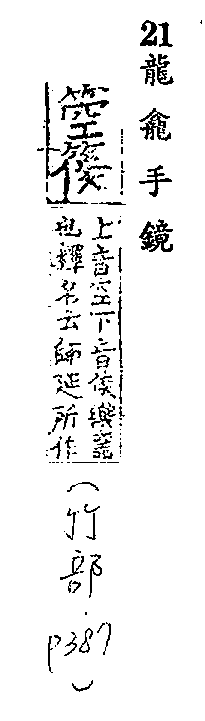 21龍龕手鏡
箜篌
上音空下音侯樂器
也釋名云師延所作
(竹部.p387)